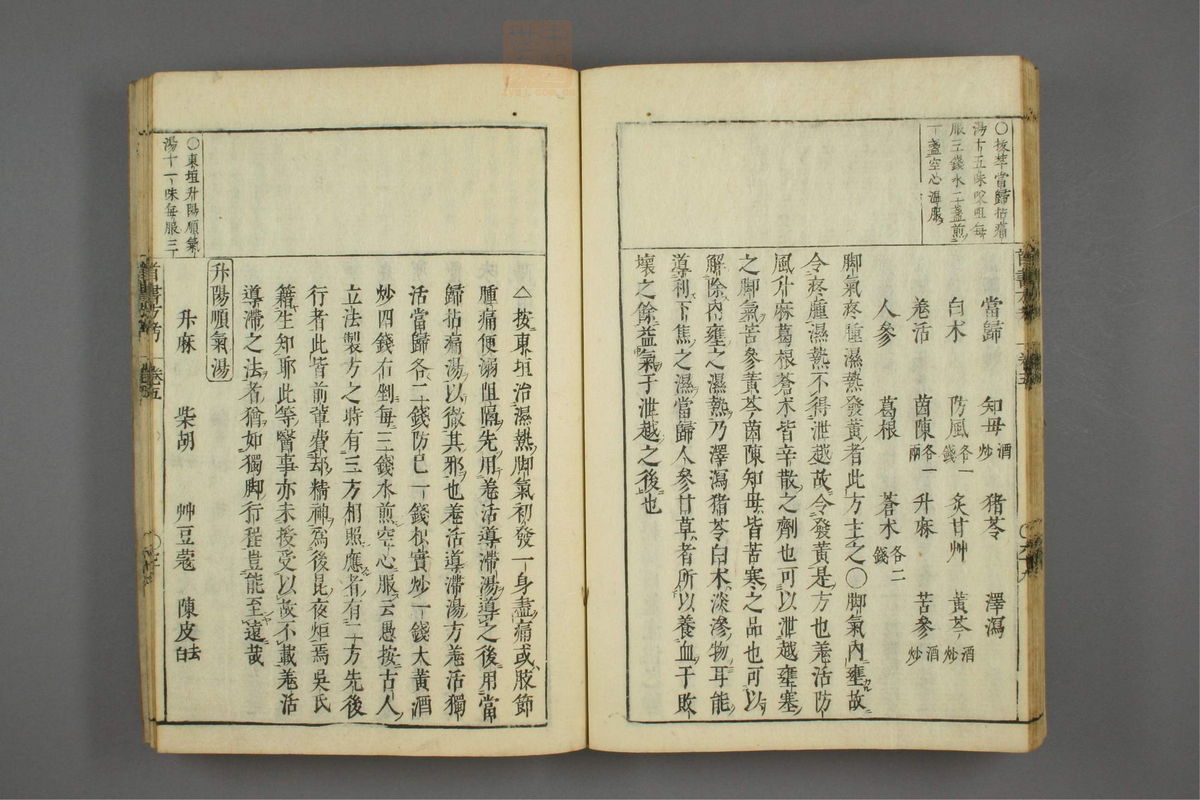 〇拔萃當歸拈痛
湯十五味㕮咀每
服三錢水二盞煎
一盞空心溫服
當歸　知母酒炒　猪苓　澤瀉
白朮　防風各一錢　炙甘艸　黃芩酒炒
羗活　茵陳各一兩　升麻　苦參酒炒
人參　葛根　蒼朮各二錢
脚氣疼腫濕熱發黃者此方主之〇脚氣內壅故
令疼腫濕熱不得泄越故令發黃是方也羗活防
風升麻葛根蒼朮皆辛散之劑也可以泄越壅塞
之脚氣苦參黃芩茵陳知母皆苦寒之品也可以
解除內壅之濕熱乃澤瀉猪苓白朮淡滲物耳能
導利下焦之濕當歸人參甘草者所以養血于敗
壞之餘益氣于泄越之後也
卷五
〇東垣升陽順氣
湯十一味每服三
△按東垣治濕熱脚氣初發一身盡痛或肢節
腫痛便溺阻隔先用羗活導滯湯導之後用當
歸拈痛湯以徹其邪也羗活導滯湯方羗活獨
活當歸各二錢防已一錢枳實炒一錢大黃酒
炒四錢右剉每三錢水煎空心服云愚按古人
立法製方之時有三方相照應者有二方先後
行者此皆前輩費却精神爲後昆夜炬焉吳氏
籍生知耶此等醫事亦未授受以故不載羗活
導滯之法者猶如獨脚行程豈能至遠哉
升陽順氣湯
升麻　柴胡　艸豆蔻　陳皮去白
卷五